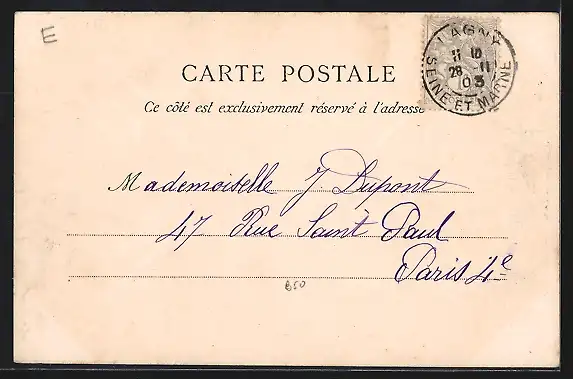 E
LAGNY
11 10
28 11
03
SEINE ET MARNE
CARTE POSTALE
Ce côté est exclusivement réservé à l'adresse
Mademoiselle J Dupont
47 Rue Saint Paul
Paris 4e